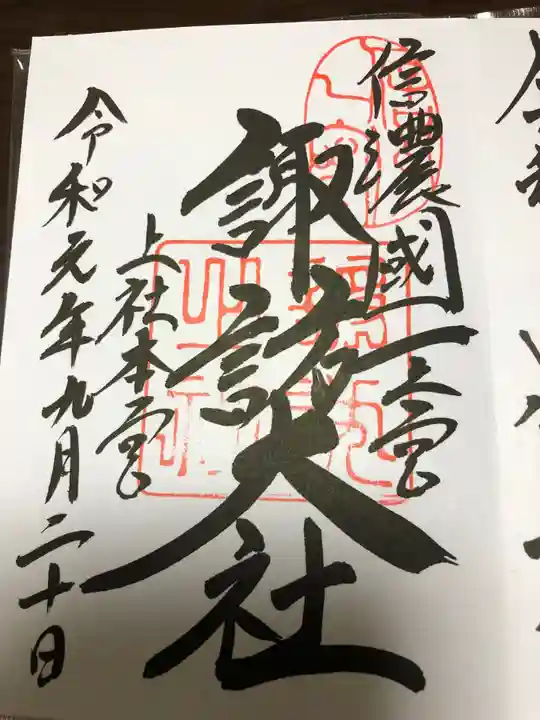 信濃國一之宮
諏訪大社
上社本宮
令和元年九月二十日